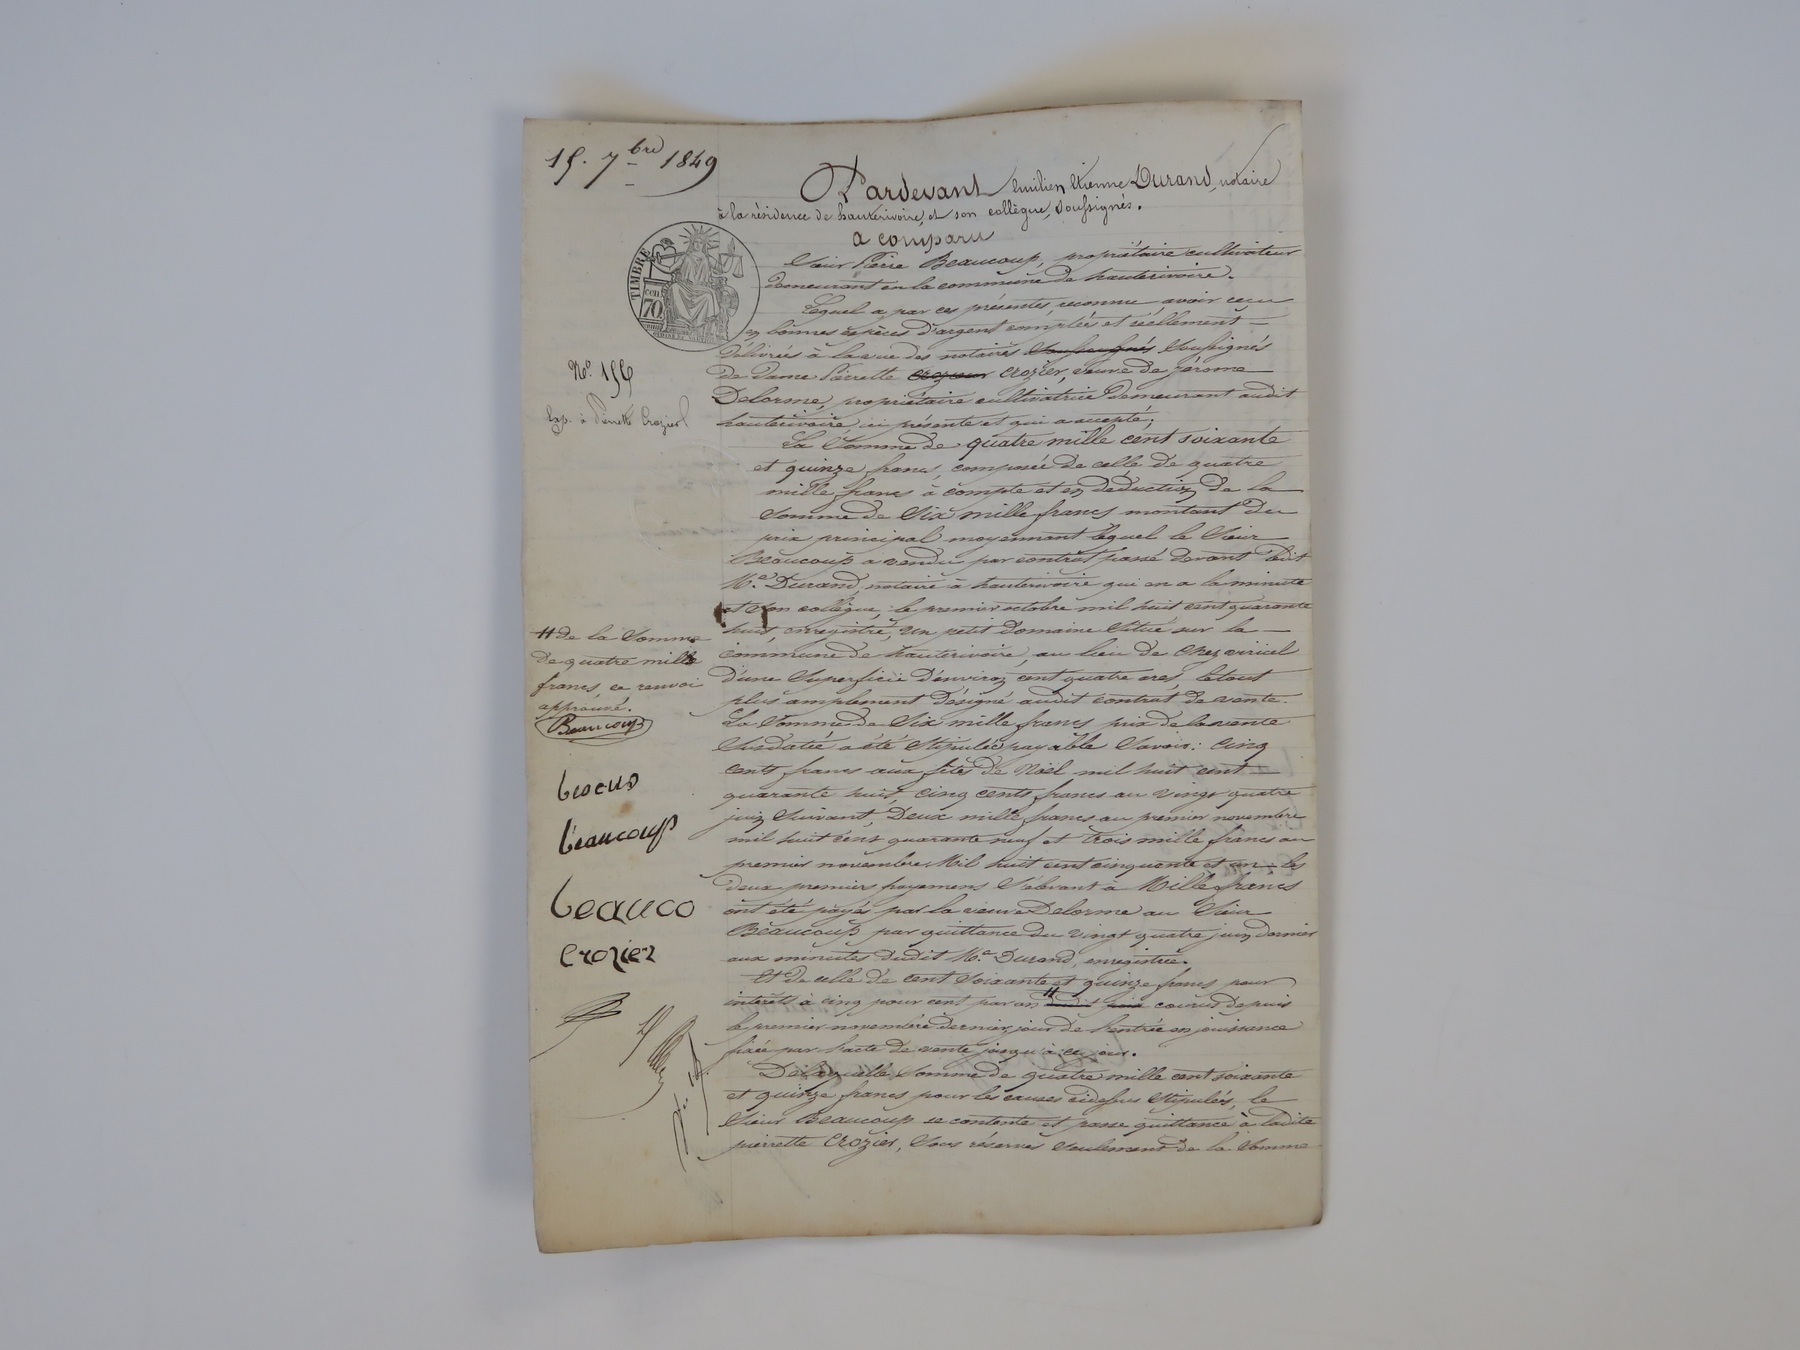 15. 7bre 1849
Pardevant Emilien Etienne Durand, notaire
à la résidence de hauterivoire, et son collègue, soussignés.
a comparu
TIMBRE
70
Sieur Pierre Beaucoup, propriétaire cultivateur
demeurant en la commune de hauterivoire.
Lequel a par ces présentes, reconnu avoir reçu
en bonnes espèces d'argent comptées et réellement
délivrées à la vue des notaires soussignés soussignés
N° 155
de dame Pierrette Crozier, veuve de jérome
Delorme, propriétaire cultivatrice demeurant audit
Exp. à Pierrette Crozier
hauterivoire ici présente et qui a accepté;
La Somme de quatre mille cent soixante
et quinze francs, composée de celle de quatre
mille francs à compte et en déduction de la
somme de Six mille francs montant du
prix principal moyennant lequel le Sieur
Beaucoup a vendu par contrat passé devant ledit
Me. Durand, notaire à hauterivoire qui en a la minute
et son collègue, le premier octobre mil huit cent quarante
huit, enregistré, un petit domaine Situé sur la
commune de hauterivoire, au lieu de Chez viricel
d'une Superficie d'environ cent quatre ares, le tout
plus amplement désigné audit contrat de vente.
La Somme de Six mille francs prix de la vente
Susdatée a été Stipulée payable Savoir: Cinq
cents francs aux fêtes de Noël mil huit cent
quarante huit, cinq cents francs au vingt quatre
juin Suivant, Deux mille francs au premier novembre
mil huit cent quarante neuf et trois mille francs au
premier novembre Mil huit cent cinquante et un les
deux premiers payemens S'élevant à Mille francs
ont été payés par la veuve Delorme au Sieur
Beaucoup par quittance du vingt quatre juin dernier
aux minutes dudit Me. Durand, enregistrée.
Et de celle de cent soixante et quinze francs pour
intérêts à cinq pour cent par an # dudit prix courus depuis
le premier novembre dernier, jour de l'entrée en jouissance
fixée par l'acte de vente jusqu'à ce jour.
De laquelle Somme de quatre mille cent soixante
et quinze francs pour les causes cidessus Stipulées, le
Sieur Beaucoup se contente et passe quittance à ladite
pierrette Crozier, Sous réserves Seulement de la Somme
# de la Somme
de quatre mille
francs, ce renvoi
approuvé.
Beaucoup
beaucoup
beauco
Crozier